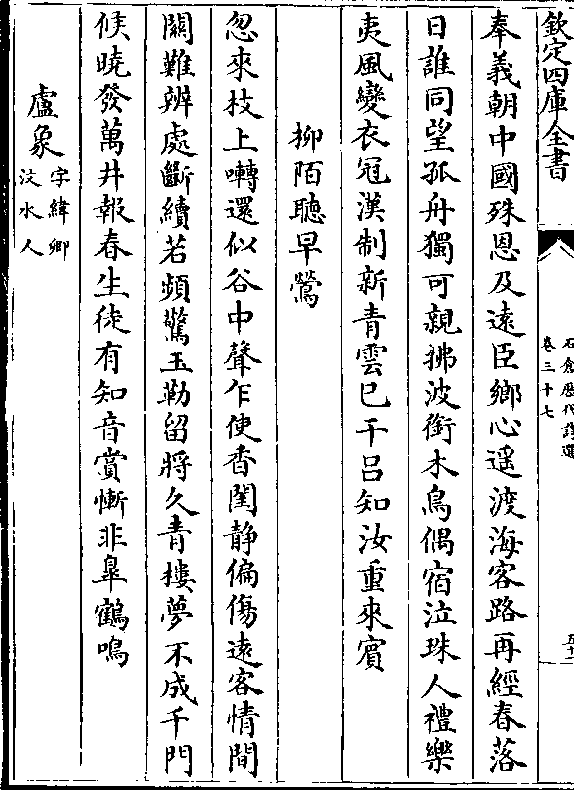 欽定四庫全書
石倉歷代詩選
卷三十七
五十一
奉義朝中國殊恩及遠臣鄉心遥渡海客路再經春落
日誰同望孤舟獨可親拂波銜木鳥偶宿泣珠人禮樂
夷風變衣冠漢制新青雲已干吕知汝重來賔
柳陌聽早鶯
忽來枝上囀還似谷中聲乍使香閨静偏傷遠客情間
關難辨處斷續若頻驚玉勒留將久青樓夢不成千門
候曉發萬井報春生徒有知音賞慚非臯鶴鳴
盧象
字緯卿
汶水人